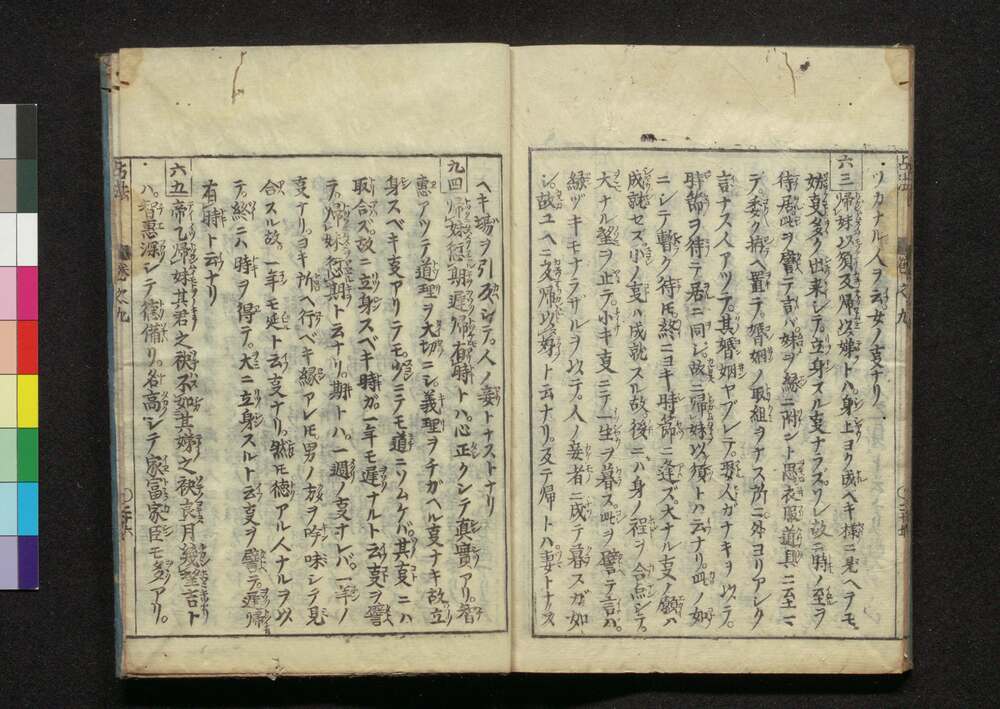 ツカナル人ヲ云女ノ支ナリ
六三 歸妹以須反歸以娣トハ身上ヨク成ヘキ様ニ見ヘテモ
妨支多ク出来シテ立身スル支ナラズワレ故ニ時ノ至ヲ
待居此ヲ譬テ言バ妹ヲ縁ニ附ント思衣服道具ニ至マ
テ委ク拵ヘ置テ婚姻ノ取組ヲナス所ニ外ヨリアシク
言ナス人アツテ其婚姻ヤブレテ娶人ガナキヲ以テ
時節ヲ待テ居ニ同ジ故ニ歸妹以須トハ云ナリ此ノ如
ニシテ暫ク待モ終ニヨキ時節ニ逢ズ大ナル支ノ願ハ
成就セズ小ノ支ハ成就スル故後ニハ身ノ程ヲ合点シテ
大ナル望ヲ止テ小キ支ニテ一生ヲ暮ス此ヲ譬テ言ハ
縁ヅキモナラザルヲ以テ人ノ妾者ニ成テ暮スガ如
シ故ユヘニ反歸以娣ト云ナリ反テ歸トハ妻トナス
ヘキ場ヲ引反シテ人ノ妾トナストナリ
九四 歸妹愆期遲歸有時トハ心正クシテ眞實アリ智
惠アツテ道理ヲ大切ニシ義理ヲチガヘル支ナキ故立
身スベキ支アリテモ少ニテモ道ニソムケバ其支ニハ
取合ズ故ニ立身スベキ時ガ一年モ遲ナルト云支ヲ譬
テ歸妹愆期ト云ナリ期トハ一週ノ支ナレバ一年ノ
支ナリヨキ所ヘ行ベキ縁アレモ男ノ方ヲ吟味シテ見
合スル故一年モ延ト云支ナリ然モ徳アル人ナルヲ以
テ終ニハ時ヲ得テ大ニ立身スルト云支ヲ譬テ遲歸
有時ト云ナリ
六五 帝乙歸妹其君之袂不如其娣之袂良月幾望言ト
ハ智惠深シテ徳備リ名高シテ家富家臣モ多アリ
卷之九